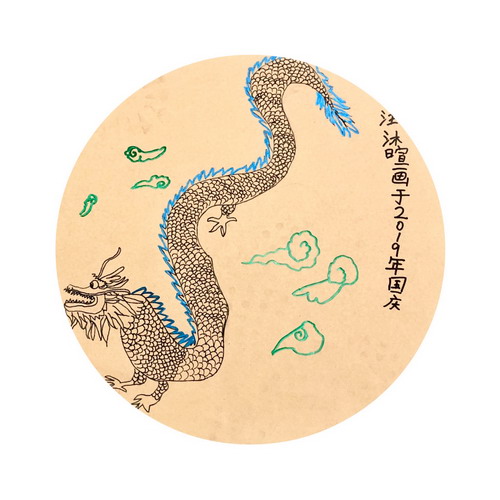 汪沐暄画于2019年国庆